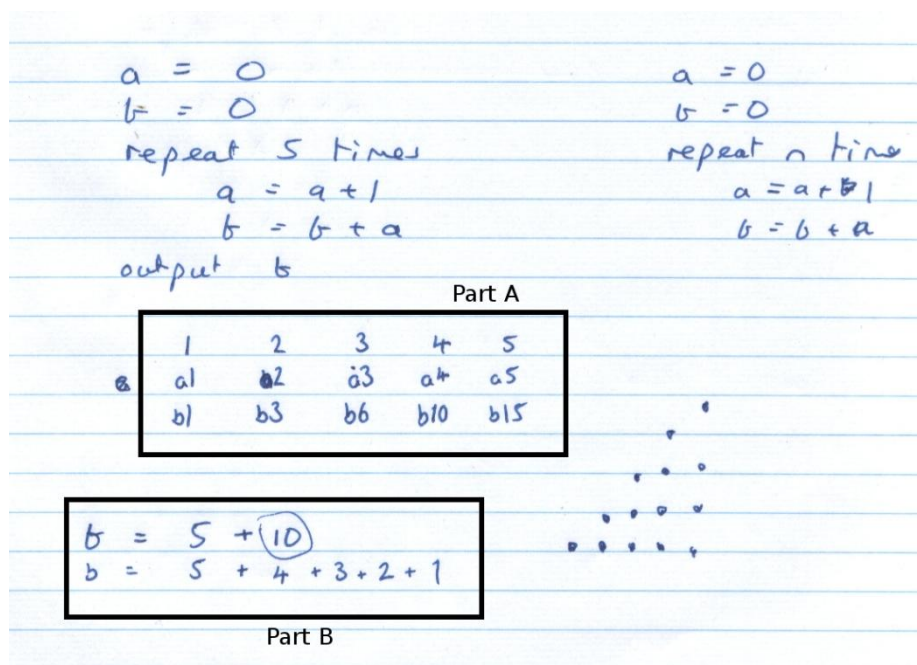 a = 0
b = 0
repeat 5 times
a = a + 1
b = b + a
output b
a = 0
b = 0
repeat n time
a = a + 1
b = b + a
Part A
1 2 3 4 5
a1 a2 a3 a4 a5
b1 b3 b6 b10 b15
b = 5 + 10
b = 5 + 4 + 3 + 2 + 1
Part B